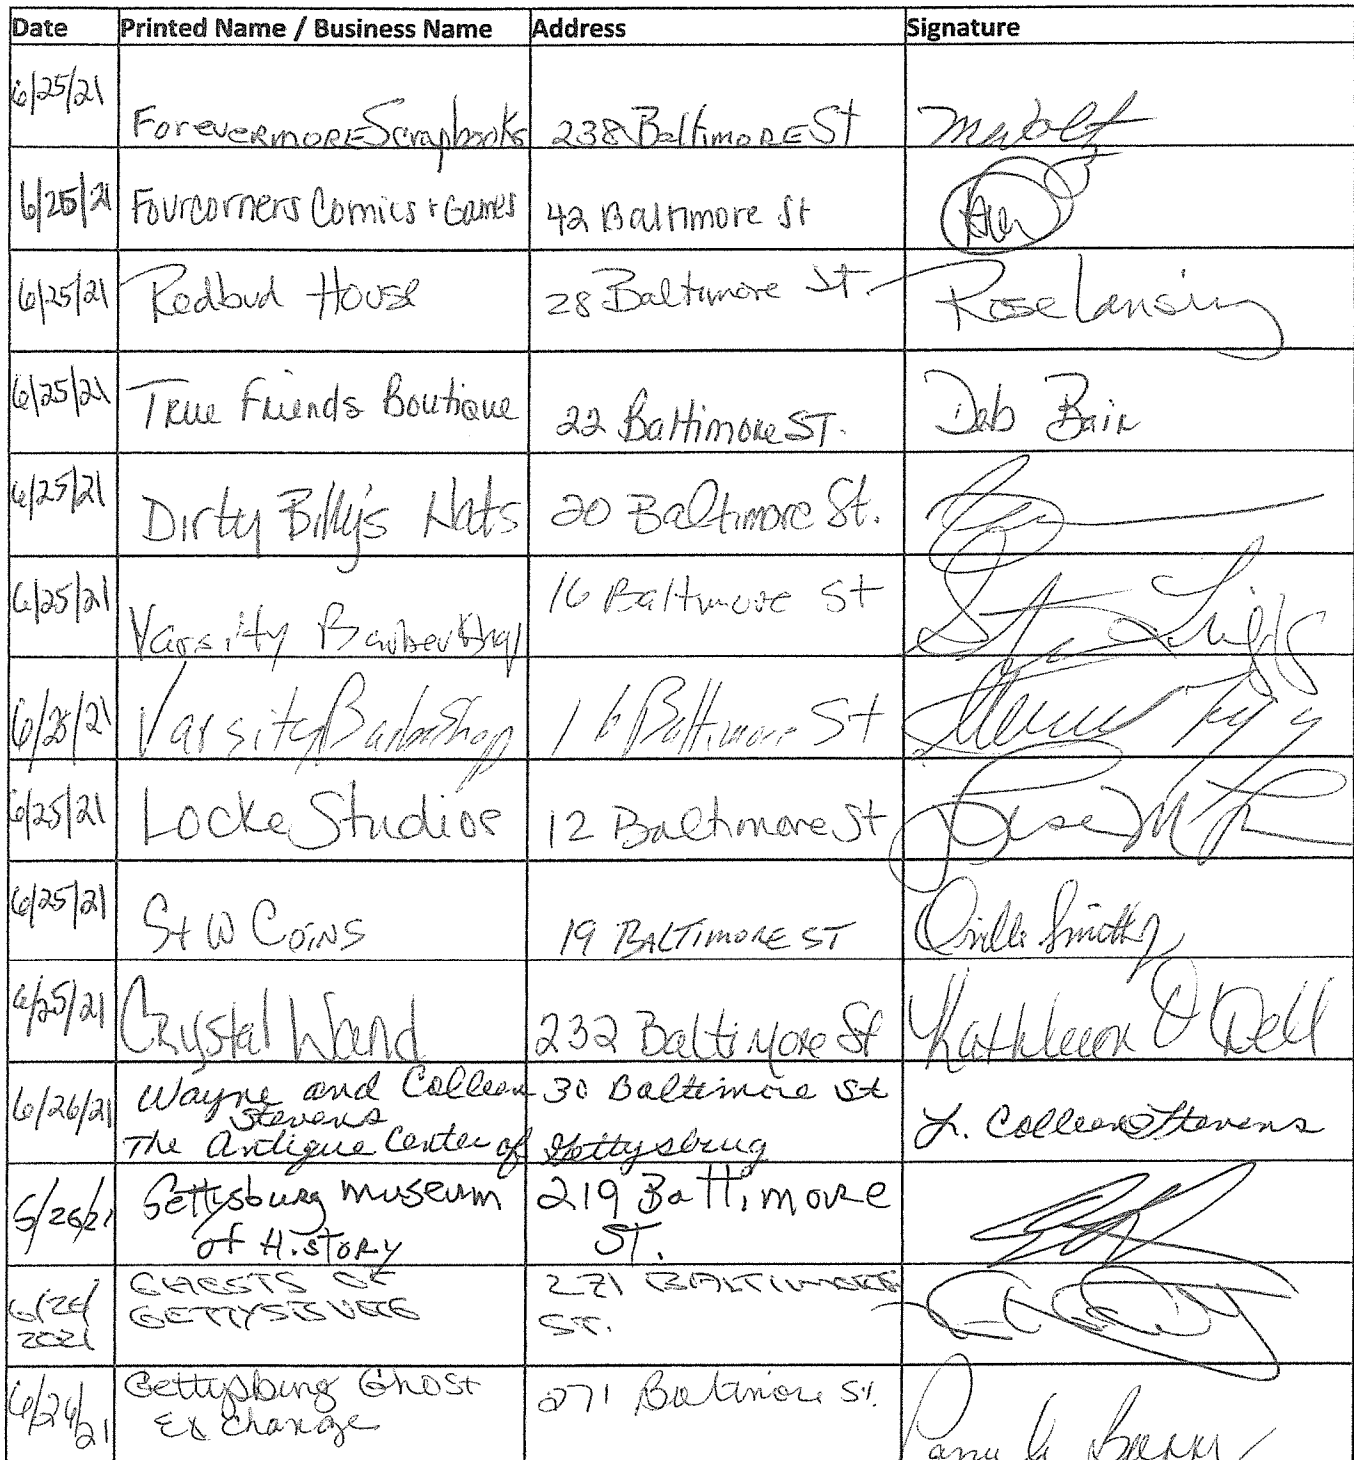 Date Printed Name / Business Name Address Signature
6/25/21 ForevermoreScrapbooks 238 Baltimore St
6/25/21 Fourcorners Comics + Games 42 Baltimore St
6/25/21 Redbud House 28 Baltimore St. Rose Lansing
6/25/21 True Friends Boutique 22 Baltimore ST. Deb Bair
6/25/21 Dirty Billy's Hats 20 Baltimore St.
6/25/21 Varsity Barbershop 16 Baltimore St
6/25/21 Varsity Barbershop 16 Baltimore St
6/25/21 Locke Studios 12 Baltimore St
6/25/21 S+W Coins 19 BALTIMORE ST
6/25/21 Crystal Wand 232 Baltimore St Kathleen O'Dell
6/26/21 Wayne and Colleen 30 Baltimore St L. Colleen Stevens
Stevens
The Antique Center of Gettysbrug
5/26/21 Gettysburg Museum 219 Baltimore
of History ST.
6/26/ GHOSTS OF 271 BALTIMORE
2021 GETTYSBURG ST.
6/26/21 Gettysburg Ghost 271 Baltimore St.
Exchange